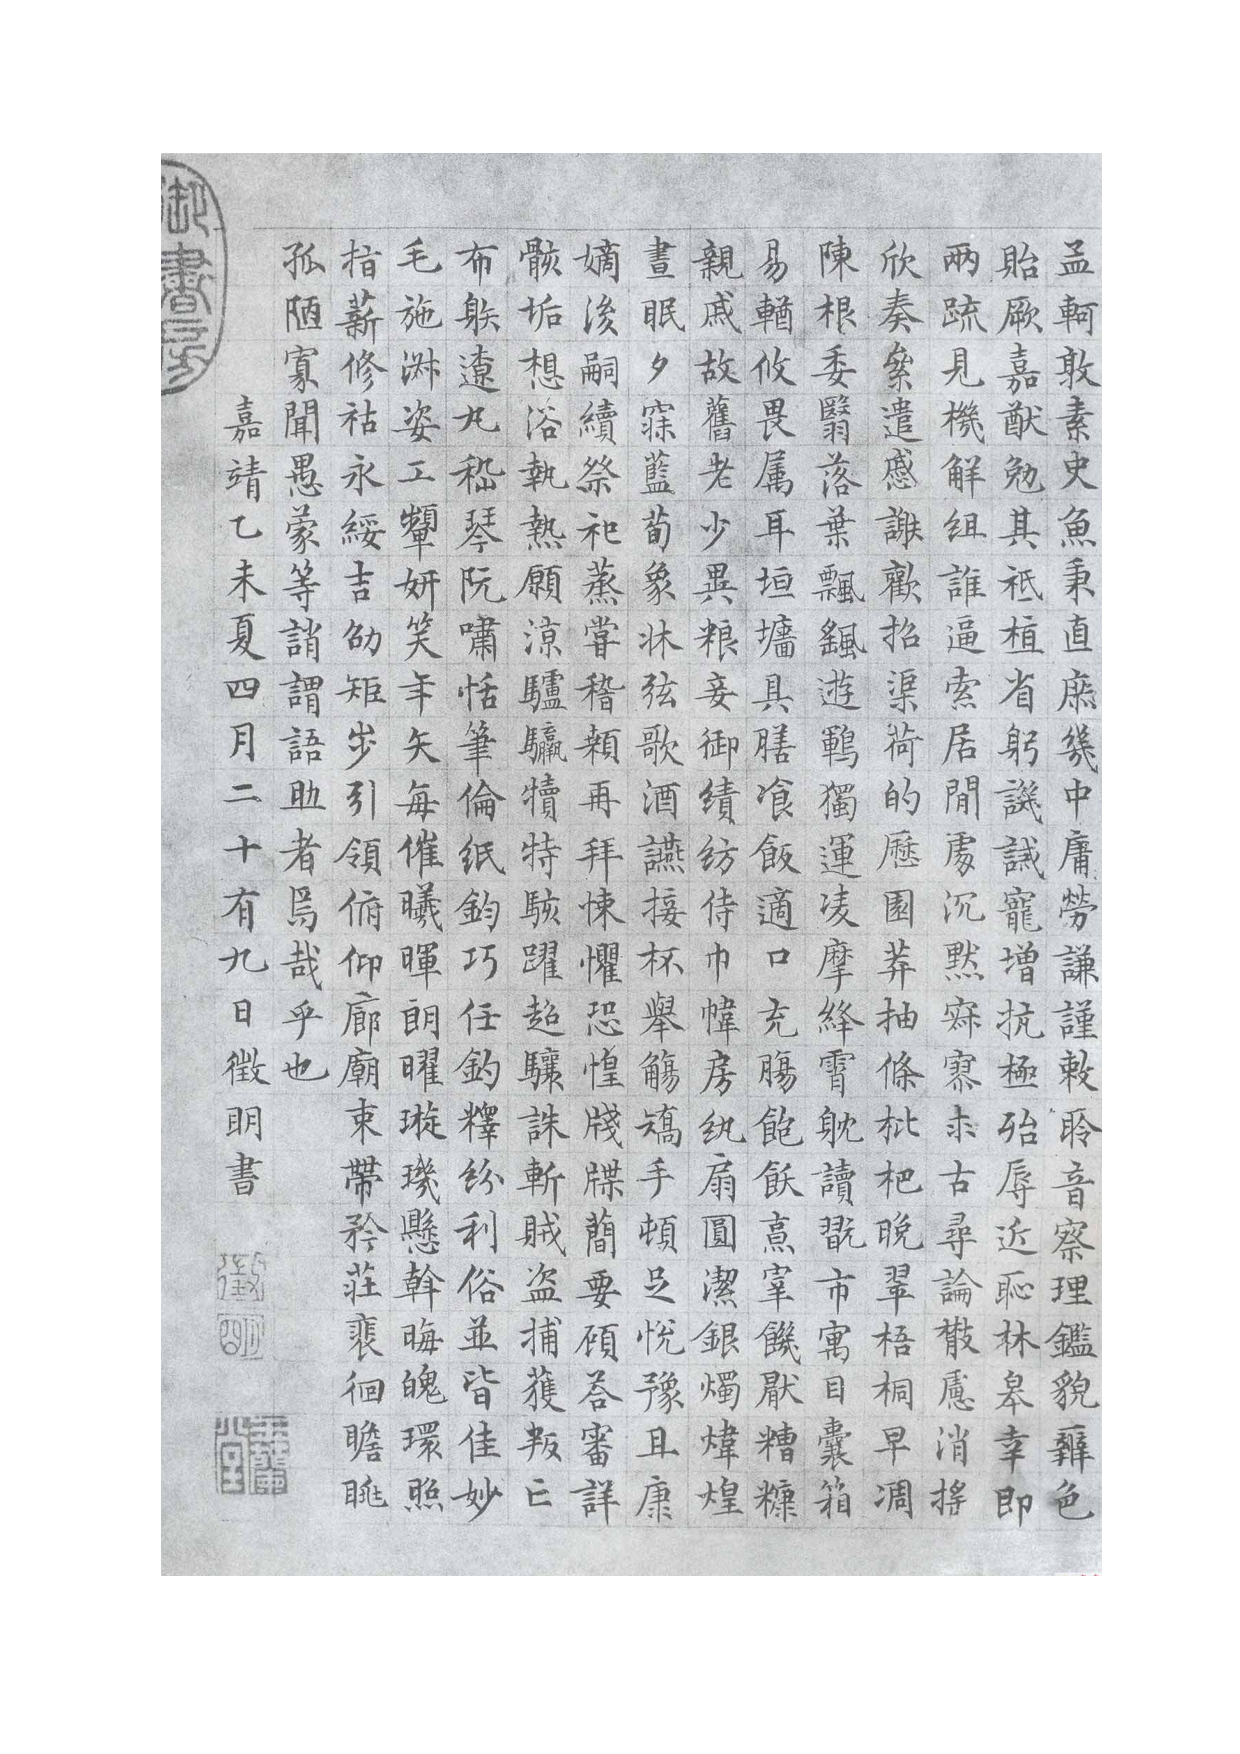 孟軻敦素史魚秉直庶幾中庸勞謙謹敕聆音察理鑑貌辨色
貽厥嘉猷勉其祗植省躬譏誡寵增抗極殆辱近恥林皋幸即
兩疏見機解組誰逼索居閒處沉默寂寥求古尋論散慮消搖
欣奏累遣慼謝歡招渠荷的歷園莽抽條枇杷晚翠梧桐早凋
陳根委翳落葉飄颻遊鵾獨運凌摩絳霄躭讀翫市寓目囊箱
易輶攸畏属耳垣墻具膳飡飯適口充腸飽飫烹宰饑厭糟糠
親戚故舊老少異粮妾御績紡侍巾帷房紈扇圓潔銀燭煒煌
晝眠夕寐藍荀象牀弦歌酒讌接杯舉觴矯手頓足悅豫且康
嫡後嗣續祭祀蒸嘗稽顙再拜悚懼恐惶牋牒簡要顧荅審詳
骸垢想浴執熱願涼驢騾犢特駭躍超驤誅斬賊盗捕獲叛亡
布䠶遼丸嵇琴阮嘯恬筆倫紙鈞巧任釣釋紛利俗並皆佳妙
毛施淑姿工顰妍笑年矢每催曦暉朗曜璇璣懸斡晦魄環照
指薪修祜永綏吉劭矩步引領俯仰廊廟束帶矜莊裴徊瞻眺
孤陋寡聞愚蒙等誚謂語助者焉哉乎也
嘉靖乙未夏四月二十有九日徵明書
徵明